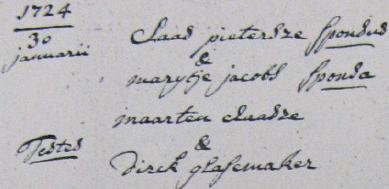 1724
30
januarii
Claas pietersze Sponsus
&
marytje jacobs Sponsa
maarten claasze
&
Testes
Dirck glasemaker